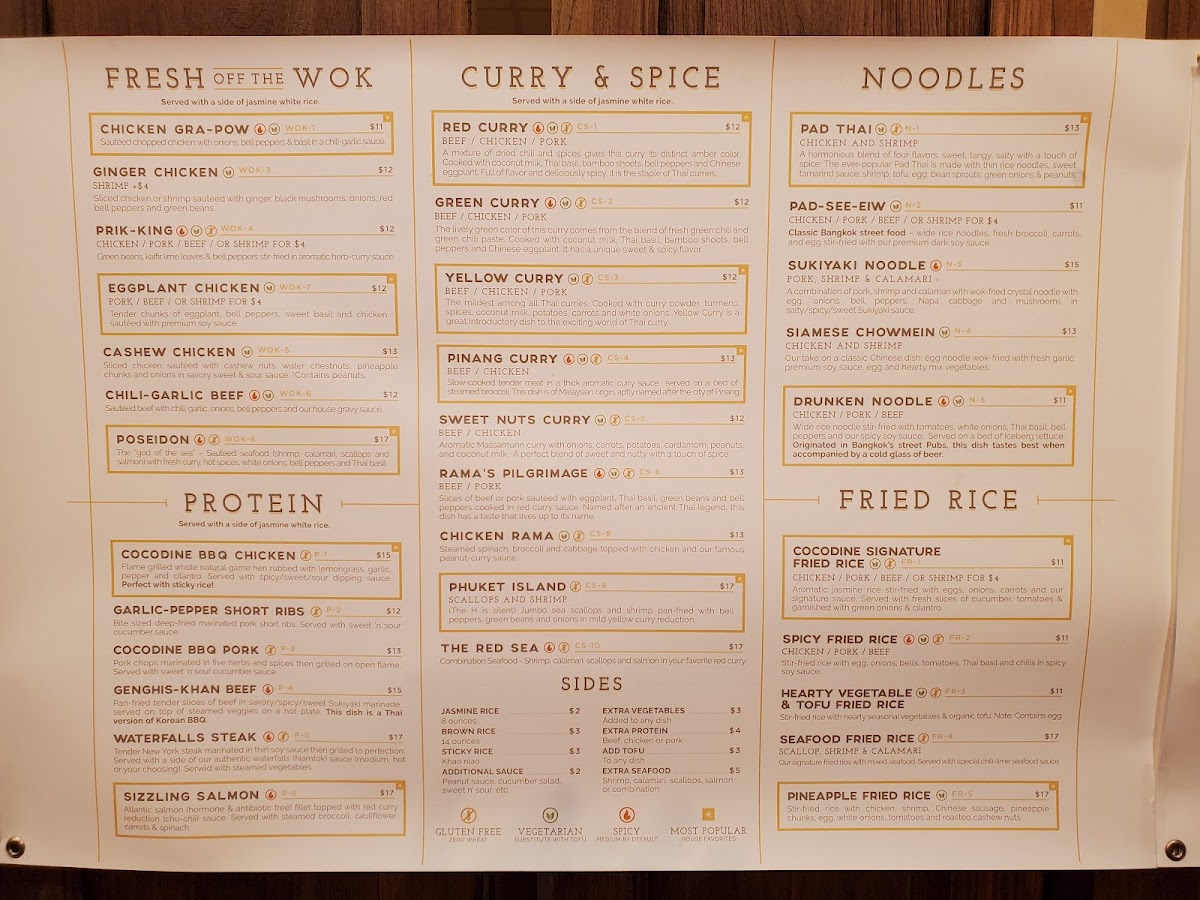 FRESH OFF THE WOK
Served with a side of jasmine white rice.
CHICKEN GRA-POW WOK-1 $11
Sautéed chopped chicken with onions, bell peppers & basil in a chili-garlic sauce.
GINGER CHICKEN WOK-3 $12
SHRIMP +$4
Sliced chicken or shrimp sautéed with ginger, black mushrooms, onions, red
bell peppers and green beans.
PRIK-KING WOK-4 $12
CHICKEN / PORK / BEEF / OR SHRIMP FOR $4
Green beans, kaffir lime leaves & bell peppers stir-fried in aromatic herb-curry sauce.
EGGPLANT CHICKEN WOK-7 $12
PORK / BEEF / OR SHRIMP FOR $4
Tender chunks of eggplant, bell peppers, sweet basil and chicken
sautéed with premium soy sauce.
CASHEW CHICKEN WOK-5 $13
Sliced chicken sautéed with cashew nuts, water chestnuts, pineapple
chunks and onions in savory sweet & sour sauce. *Contains peanuts.
CHILI-GARLIC BEEF WOK-6 $12
Sautéed beef with chili, garlic, onions, bell peppers and our house gravy sauce.
POSEIDON WOK-8 $17
The "god of the sea" – Sautéed seafood (shrimp, calamari, scallops and
salmon) with fresh curry, hot spices, white onions, bell peppers and Thai basil.
PROTEIN
Served with a side of jasmine white rice.
COCODINE BBQ CHICKEN P-1 $15
Flame grilled whole natural game hen rubbed with lemongrass, garlic,
pepper and cilantro. Served with spicy/sweet/sour dipping sauce.
Perfect with sticky rice!
GARLIC-PEPPER SHORT RIBS P-2 $12
Bite sized deep-fried marinated pork short ribs. Served with sweet 'n sour
cucumber sauce.
COCODINE BBQ PORK P-3 $13
Pork chops marinated in five herbs and spices then grilled on open flame.
Served with sweet 'n sour cucumber sauce.
GENGHIS-KHAN BEEF P-4 $15
Pan-fried tender slices of beef in savory/spicy/sweet Sukiyaki marinade,
served on top of steamed veggies on a hot plate. This dish is a Thai
version of Korean BBQ.
WATERFALLS STEAK P-5 $17
Tender New York steak marinated in thin soy sauce then grilled to perfection.
Served with a side of our authentic waterfalls (Namtok) sauce (medium, hot
or your choosing). Served with steamed vegetables.
SIZZLING SALMON P-6 $17
Atlantic salmon (hormone & antibiotic free) fillet topped with red curry
reduction (chu-chii) sauce. Served with steamed broccoli, cauliflower,
carrots & spinach.
CURRY & SPICE
Served with a side of jasmine white rice.
RED CURRY CS-1 $12
BEEF / CHICKEN / PORK
A mixture of dried chili and spices gives this curry its distinct amber color.
Cooked with coconut milk, Thai basil, bamboo shoots, bell peppers and Chinese
eggplant. Full of flavor and deliciously spicy, it is the staple of Thai curries.
GREEN CURRY CS-2 $12
BEEF / CHICKEN / PORK
The lively green color of this curry comes from the blend of fresh green chili and
green chili paste. Cooked with coconut milk, Thai basil, bamboo shoots, bell
peppers and Chinese eggplant. It has a unique sweet & spicy flavor.
YELLOW CURRY CS-3 $12
BEEF / CHICKEN / PORK
The mildest among all Thai curries. Cooked with curry powder, turmeric,
spices, coconut milk, potatoes, carrots and white onions. Yellow Curry is a
great introductory dish to the exciting world of Thai curry.
PINANG CURRY CS-4 $13
BEEF / CHICKEN
Slow-cooked tender meat in a thick aromatic curry sauce served on a bed of
steamed broccoli. This dish is of Malaysian origin, aptly named after the city of Pinang.
SWEET NUTS CURRY CS-5 $12
BEEF / CHICKEN
Aromatic Massamunn curry with onions, carrots, potatoes, cardamom, peanuts,
and coconut milk. A perfect blend of sweet and nutty with a touch of spice.
RAMA'S PILGRIMAGE CS-6 $13
BEEF / PORK
Slices of beef or pork sautéed with eggplant, Thai basil, green beans and bell
peppers cooked in red curry sauce. Named after an ancient Thai legend, this
dish has a taste that lives up to its name.
CHICKEN RAMA CS-8 $13
Steamed spinach, broccoli and cabbage topped with chicken and our famous
peanut-curry sauce.
PHUKET ISLAND CS-9 $17
SCALLOPS AND SHRIMP
(The H is silent) Jumbo sea scallops and shrimp pan-fried with bell
peppers, green beans and onions in mild yellow curry reduction.
THE RED SEA CS-10 $17
Combination Seafood - Shrimp, calamari, scallops and salmon in your favorite red curry.
SIDES
JASMINE RICE $2
8 ounces
BROWN RICE $3
14 ounces
STICKY RICE $3
Khao niao
ADDITIONAL SAUCE $2
Peanut sauce, cucumber salad,
sweet n' sour, etc.
EXTRA VEGETABLES $3
Added to any dish
EXTRA PROTEIN $4
Beef, chicken or pork
ADD TOFU $3
To any dish
EXTRA SEAFOOD $5
Shrimp, calamari, scallops, salmon
or combination.
GLUTEN FREE
ZERO WHEAT
VEGETARIAN
SUBSTITUTE WITH TOFU
SPICY
MEDIUM BY DEFAULT
MOST POPULAR
HOUSE FAVORITES
NOODLES
PAD THAI N-1 $13
CHICKEN AND SHRIMP
A harmonious blend of four flavors: sweet, tangy, salty with a touch of
spice. The ever-popular Pad Thai is made with thin rice noodles, sweet
tamarind sauce, shrimp, tofu, egg, bean sprouts, green onions & peanuts.
PAD-SEE-EIW N-2 $11
CHICKEN / PORK / BEEF / OR SHRIMP FOR $4
Classic Bangkok street food – wide rice noodles, fresh broccoli, carrots,
and egg stir-fried with our premium dark soy sauce.
SUKIYAKI NOODLE N-3 $15
PORK, SHRIMP & CALAMARI
A combination of pork, shrimp and calamari with wok-fried crystal noodle with
egg, onions, bell peppers, Napa cabbage and mushrooms in
salty/spicy/sweet Sukiyaki sauce.
SIAMESE CHOWMEIN N-4 $13
CHICKEN AND SHRIMP
Our take on a classic Chinese dish: egg noodle wok-fried with fresh garlic,
premium soy sauce, egg and hearty mix vegetables.
DRUNKEN NOODLE N-5 $11
CHICKEN / PORK / BEEF
Wide rice noodle stir-fried with tomatoes, white onions, Thai basil, bell
peppers and our spicy soy sauce. Served on a bed of Iceberg lettuce.
Originated in Bangkok's street Pubs, this dish tastes best when
accompanied by a cold glass of beer.
FRIED RICE
COCODINE SIGNATURE
FRIED RICE FR-1 $11
CHICKEN / PORK / BEEF / OR SHRIMP FOR $4
Aromatic jasmine rice stir-fried with eggs, onions, carrots and our
signature sauce. Served with fresh slices of cucumber, tomatoes &
garnished with green onions & cilantro.
SPICY FRIED RICE FR-2 $11
CHICKEN / PORK / BEEF
Stir-fried rice with egg, onions, bells, tomatoes, Thai basil and chilis in spicy
soy sauce.
HEARTY VEGETABLE FR-3 $11
& TOFU FRIED RICE
Stir-fried rice with hearty seasonal vegetables & organic tofu. Note: Contains egg.
SEAFOOD FRIED RICE FR-4 $17
SCALLOP, SHRIMP & CALAMARI
Our signature fried rice with mixed seafood. Served with special chili-lime seafood sauce.
PINEAPPLE FRIED RICE FR-5 $17
Stir-fried rice with chicken, shrimp, Chinese sausage, pineapple
chunks, egg, white onions, tomatoes and roasted cashew nuts.